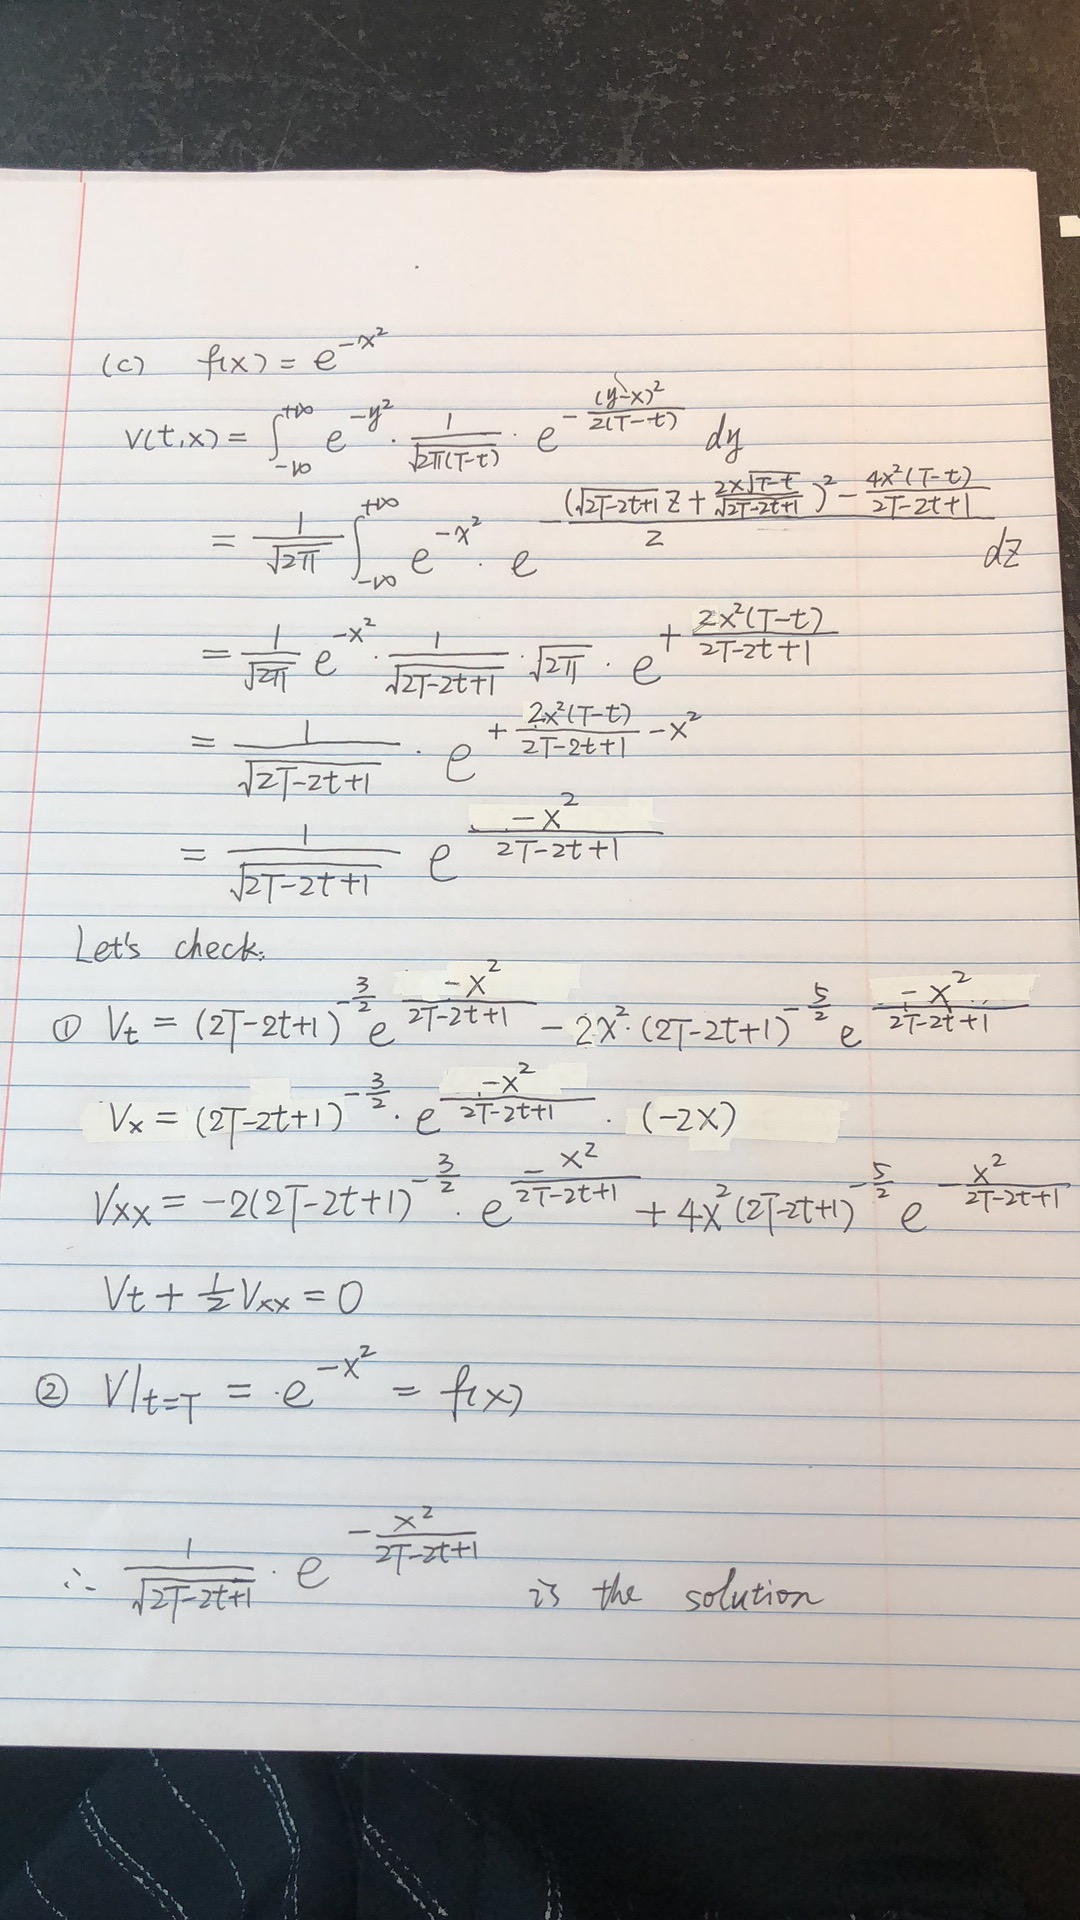 (c) f(x) = e^{-x^2}
V(t,x) = ∫_{-∞}^{+∞} e^{-y^2} · \frac{1}{\sqrt{2π(T-t)}} · e^{-\frac{(y-x)^2}{2(T-t)}} dy
= \frac{1}{\sqrt{2π}} ∫_{-∞}^{+∞} e^{-x^2} · e^{-\frac{(\sqrt{2T-2t+1} z + \frac{2x\sqrt{T-t}}{\sqrt{2T-2t+1}})^2 - \frac{4x^2(T-t)}{2T-2t+1}}{2}} dz
= \frac{1}{\sqrt{2π}} e^{-x^2} · \frac{1}{\sqrt{2T-2t+1}} · \sqrt{2π} · e^{+\frac{2x^2(T-t)}{2T-2t+1}}
= \frac{1}{\sqrt{2T-2t+1}} · e^{+\frac{2x^2(T-t)}{2T-2t+1} - x^2}
= \frac{1}{\sqrt{2T-2t+1}} e^{\frac{-x^2}{2T-2t+1}}
Let's check:
① V_t = (2T-2t+1)^{-\frac{3}{2}} e^{\frac{-x^2}{2T-2t+1}} - 2x^2 · (2T-2t+1)^{-\frac{5}{2}} e^{\frac{-x^2}{2T-2t+1}}
V_x = (2T-2t+1)^{-\frac{3}{2}} · e^{\frac{-x^2}{2T-2t+1}} · (-2x)
V_{xx} = -2(2T-2t+1)^{-\frac{3}{2}} · e^{\frac{-x^2}{2T-2t+1}} + 4x^2 (2T-2t+1)^{-\frac{5}{2}} e^{-\frac{x^2}{2T-2t+1}}
V_t + \frac{1}{2} V_{xx} = 0
② V|_{t=T} = e^{-x^2} = f(x)
∴ \frac{1}{\sqrt{2T-2t+1}} · e^{-\frac{x^2}{2T-2t+1}} is the solution